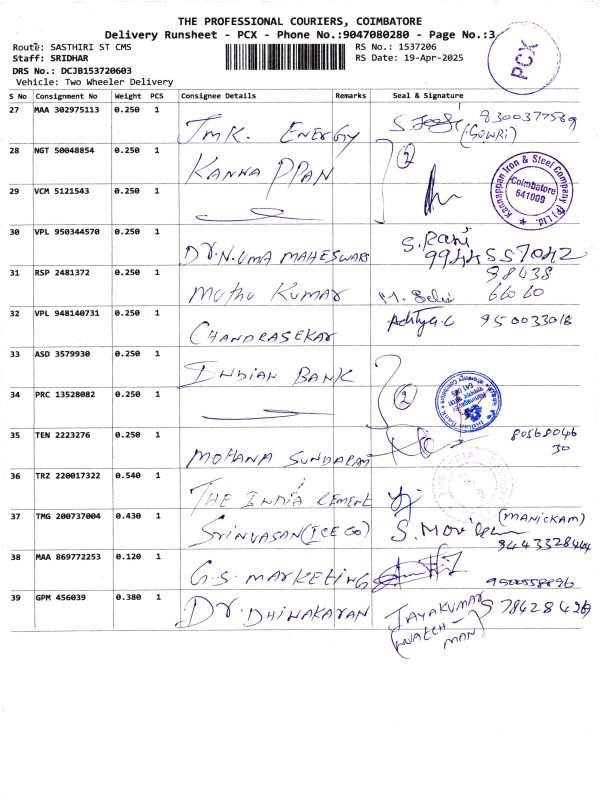 THE PROFESSIONAL COURIERS, COIMBATORE
Delivery Runsheet - PCX - Phone No.:9047080280 - Page No.:3
PCX
Route: SASTHIRI ST CMS RS No.: 1537206
Staff: SRIDHAR RS Date: 19-Apr-2025
DRS No.: DCJB153720603
Vehicle: Two Wheeler Delivery
S No Consignment No Weight PCS Consignee Details Remarks Seal & Signature
27 MAA 302975113 0.250 1 JMK. ENERGY 8300377589
(GOWRI)
28 NGT 50048854 0.250 1 KANNA PPAN (2)
Kannappan Iron & Steel Company (P) Ltd.
Coimbatore
641009
29 VCM 5121543 0.250 1
30 VPL 950344570 0.250 1 DR.N.UMA MAHESWARI S.Rani
9944557042
31 RSP 2481372 0.250 1 Muthu Kumar 98438
66060
32 VPL 948140731 0.250 1 CHANDRASEKAR Aditya.C 950033018
33 ASD 3579930 0.250 1 INDIAN BANK (2)
34 PRC 13528082 0.250 1
35 TEN 2223276 0.250 1 MOHANA SUNDARAM 80568046
30
36 TRZ 220017322 0.540 1 THE INDIA CEMENT
37 TMG 200737004 0.430 1 SRINVASAN (ICE GO) (MANICKAM)
9443328444
38 MAA 869772253 0.120 1 G.S. MARKETING 9500558896
39 GPM 456039 0.380 1 DR. DHINAKARAN JAYAKUMAR
(WATCH-
MAN)